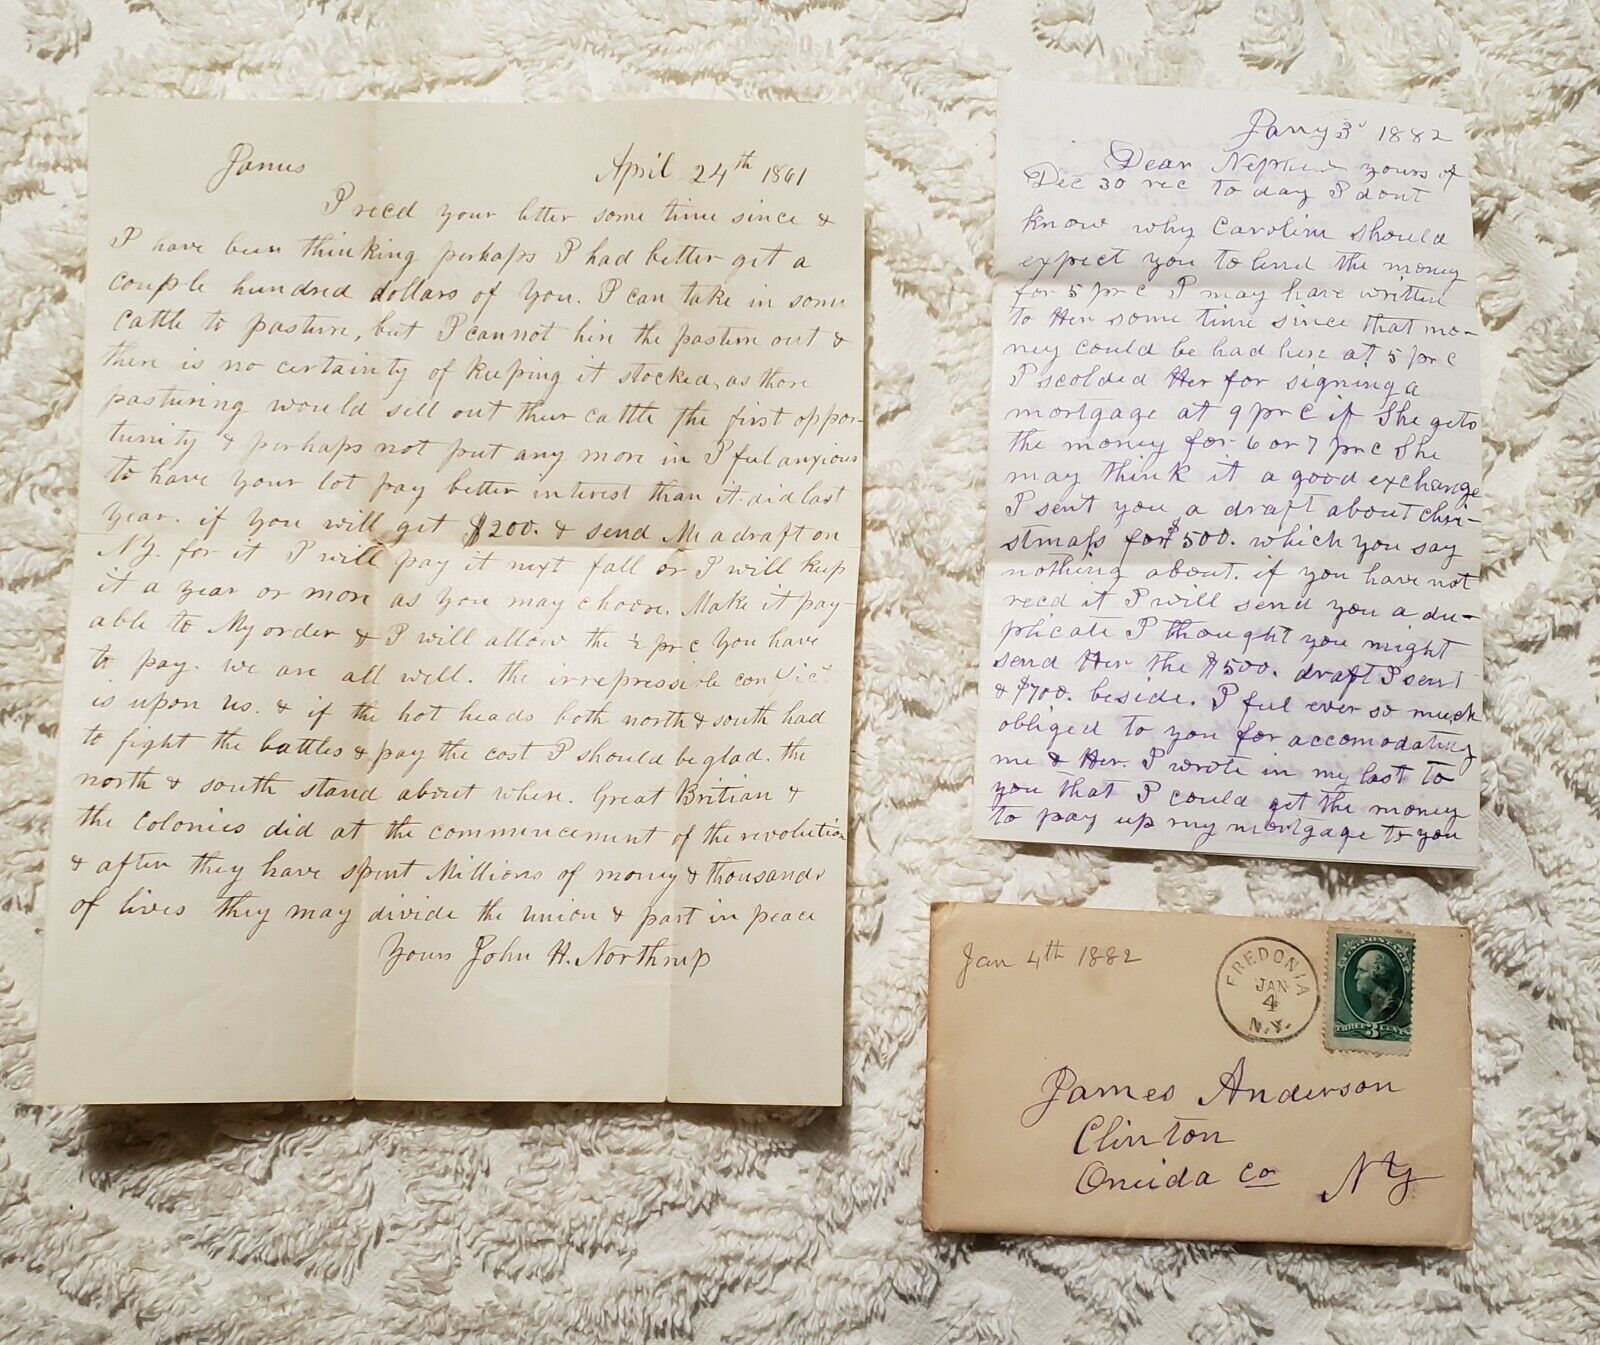 James April 24th 1861
I recd your letter some time since &
I have been thinking perhaps I had better get a
couple hundred dollars of you. I can take in some
cattle to pasture, but I cannot hire the pasture out &
there is no certainty of keeping it stocked, as those
pasturing would sell out their cattle the first oppor-
tunity & perhaps not put any more in I feel anxious
to have your lot pay better interest than it did last
year. if you will get $200. & send Me a draft on
NY. for it I will pay it next fall or I will keep
it a year or more as you may choose. Make it pay-
able to My order & I will allow the ½ pr c you have
to pay. we are all well. the irrepressible conflict
is upon us. & if the hot heads both north & south had
to fight the battles & pay the cost I should be glad. the
north & south stand about where. Great Britian &
the Colonies did at the commencement of the revolution
& after they have spent Millions of money & thousands
of lives they may divide the union & part in peace
Yours John H. Northrup
Jany 3d 1882
Dear Nephew yours of
Dec 30 rec to day I dont
know why Caroline should
expect you to lend the money
for 5 pr c I may have written
to Her some time since that mo-
ney could be had here at 5 pr c
I scolded Her for signing a
mortgage at 9 pr c if She gets
the money for 6 or 7 pr c She
may think it a good exchange
I sent you a draft about chri-
stmass for $500. which you say
nothing about. if you have not
recd it I will send you a du-
plicate I thought you might
send Her the $500. draft I sent
& $700. beside. I feel ever so much
obliged to you for accomodating
me & Her. I wrote in my last to
you that I could get the money
to pay up my mortgage to you
Jan 4th 1882
FREDONIA
JAN
4
N.Y.
U.S. POSTAGE
THREE 3 CENTS
James Anderson
Clinton
Oneida Co NY